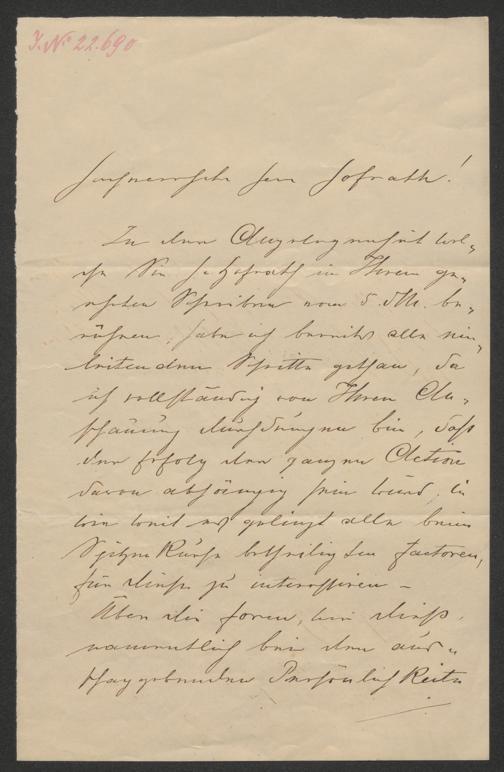 J. No 22.690
Hochverehrter Herr Hofrath!
In der Angelegenheit wel-
che Sie H. Hofrath in Ihrem ge-
ehrten Schreiben vom 5. d. M. be-
rühren, habe ich bereits alle ein-
leitenden Schritte gethan, da
ich vollständig von Ihrer An-
schauung durchdrungen bin, daß
der Erfolg der ganzen Action
davon abhängig sein wird, in
wie weit es gelingt alle beim
Spitzenkurse betheiligten Factoren,
für diese zu interessiren -
Über die Form, wie dieß,
namentlich bei den aus-
schlaggebenden Persönlichkeiten